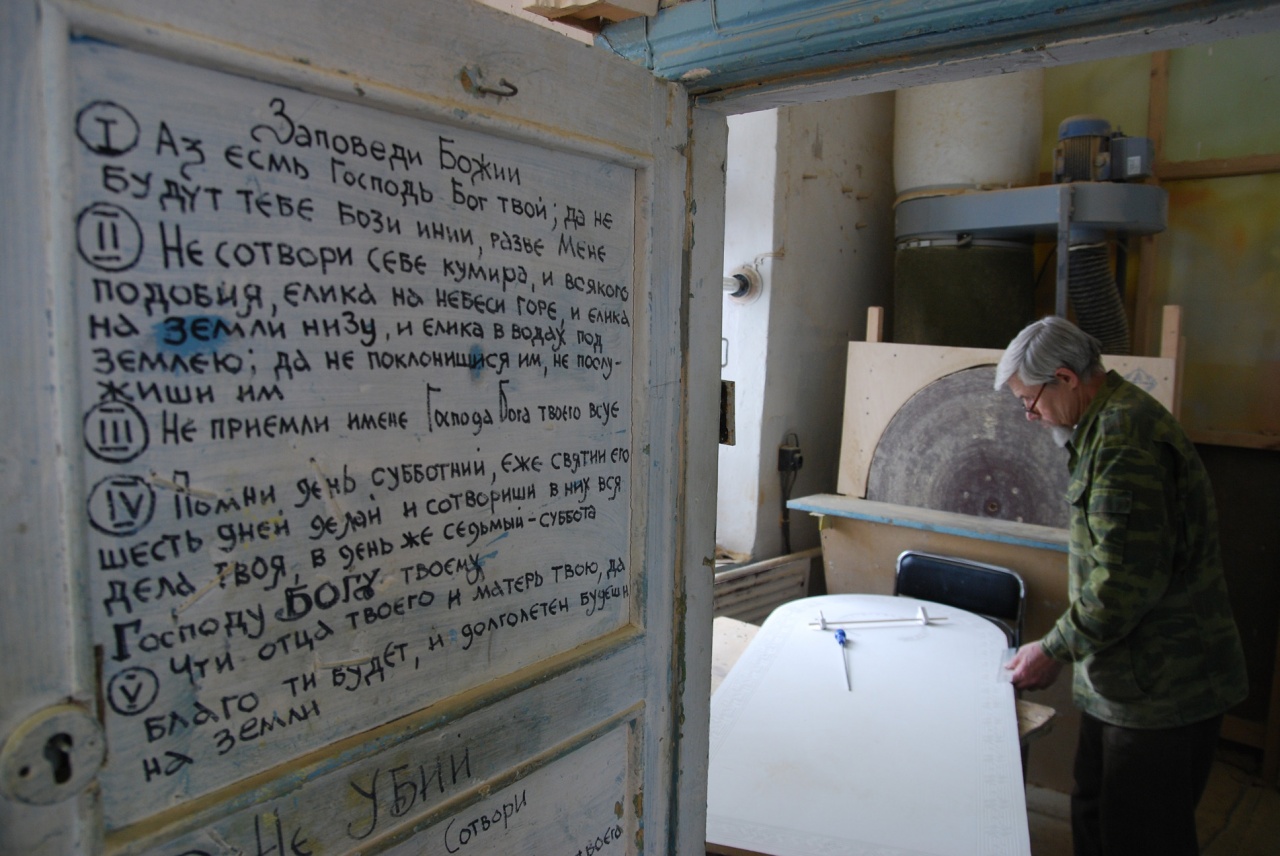 Заповеди Божии
I Аз есмь Господь Бог твой; да не
будут тебе бози инии, разве Мене
II Не сотвори себе кумира, и всякого
подобия, елика на небеси горе, и елика
на земли низу, и елика в водах под
землею; да не поклонишися им, не послу-
жиши им
III Не приемли имене Господа Бога твоего всуе
IV Помни день субботний, еже святии его
шесть дней делай и сотвориши в них вся
дела твоя, в день же седьмый-суббота
Господу Богу твоему
V Чти отца твоего и матерь твою, да
благо ти будет, и долголетен будеши
на земли
Не убий
Сотвори
твоего